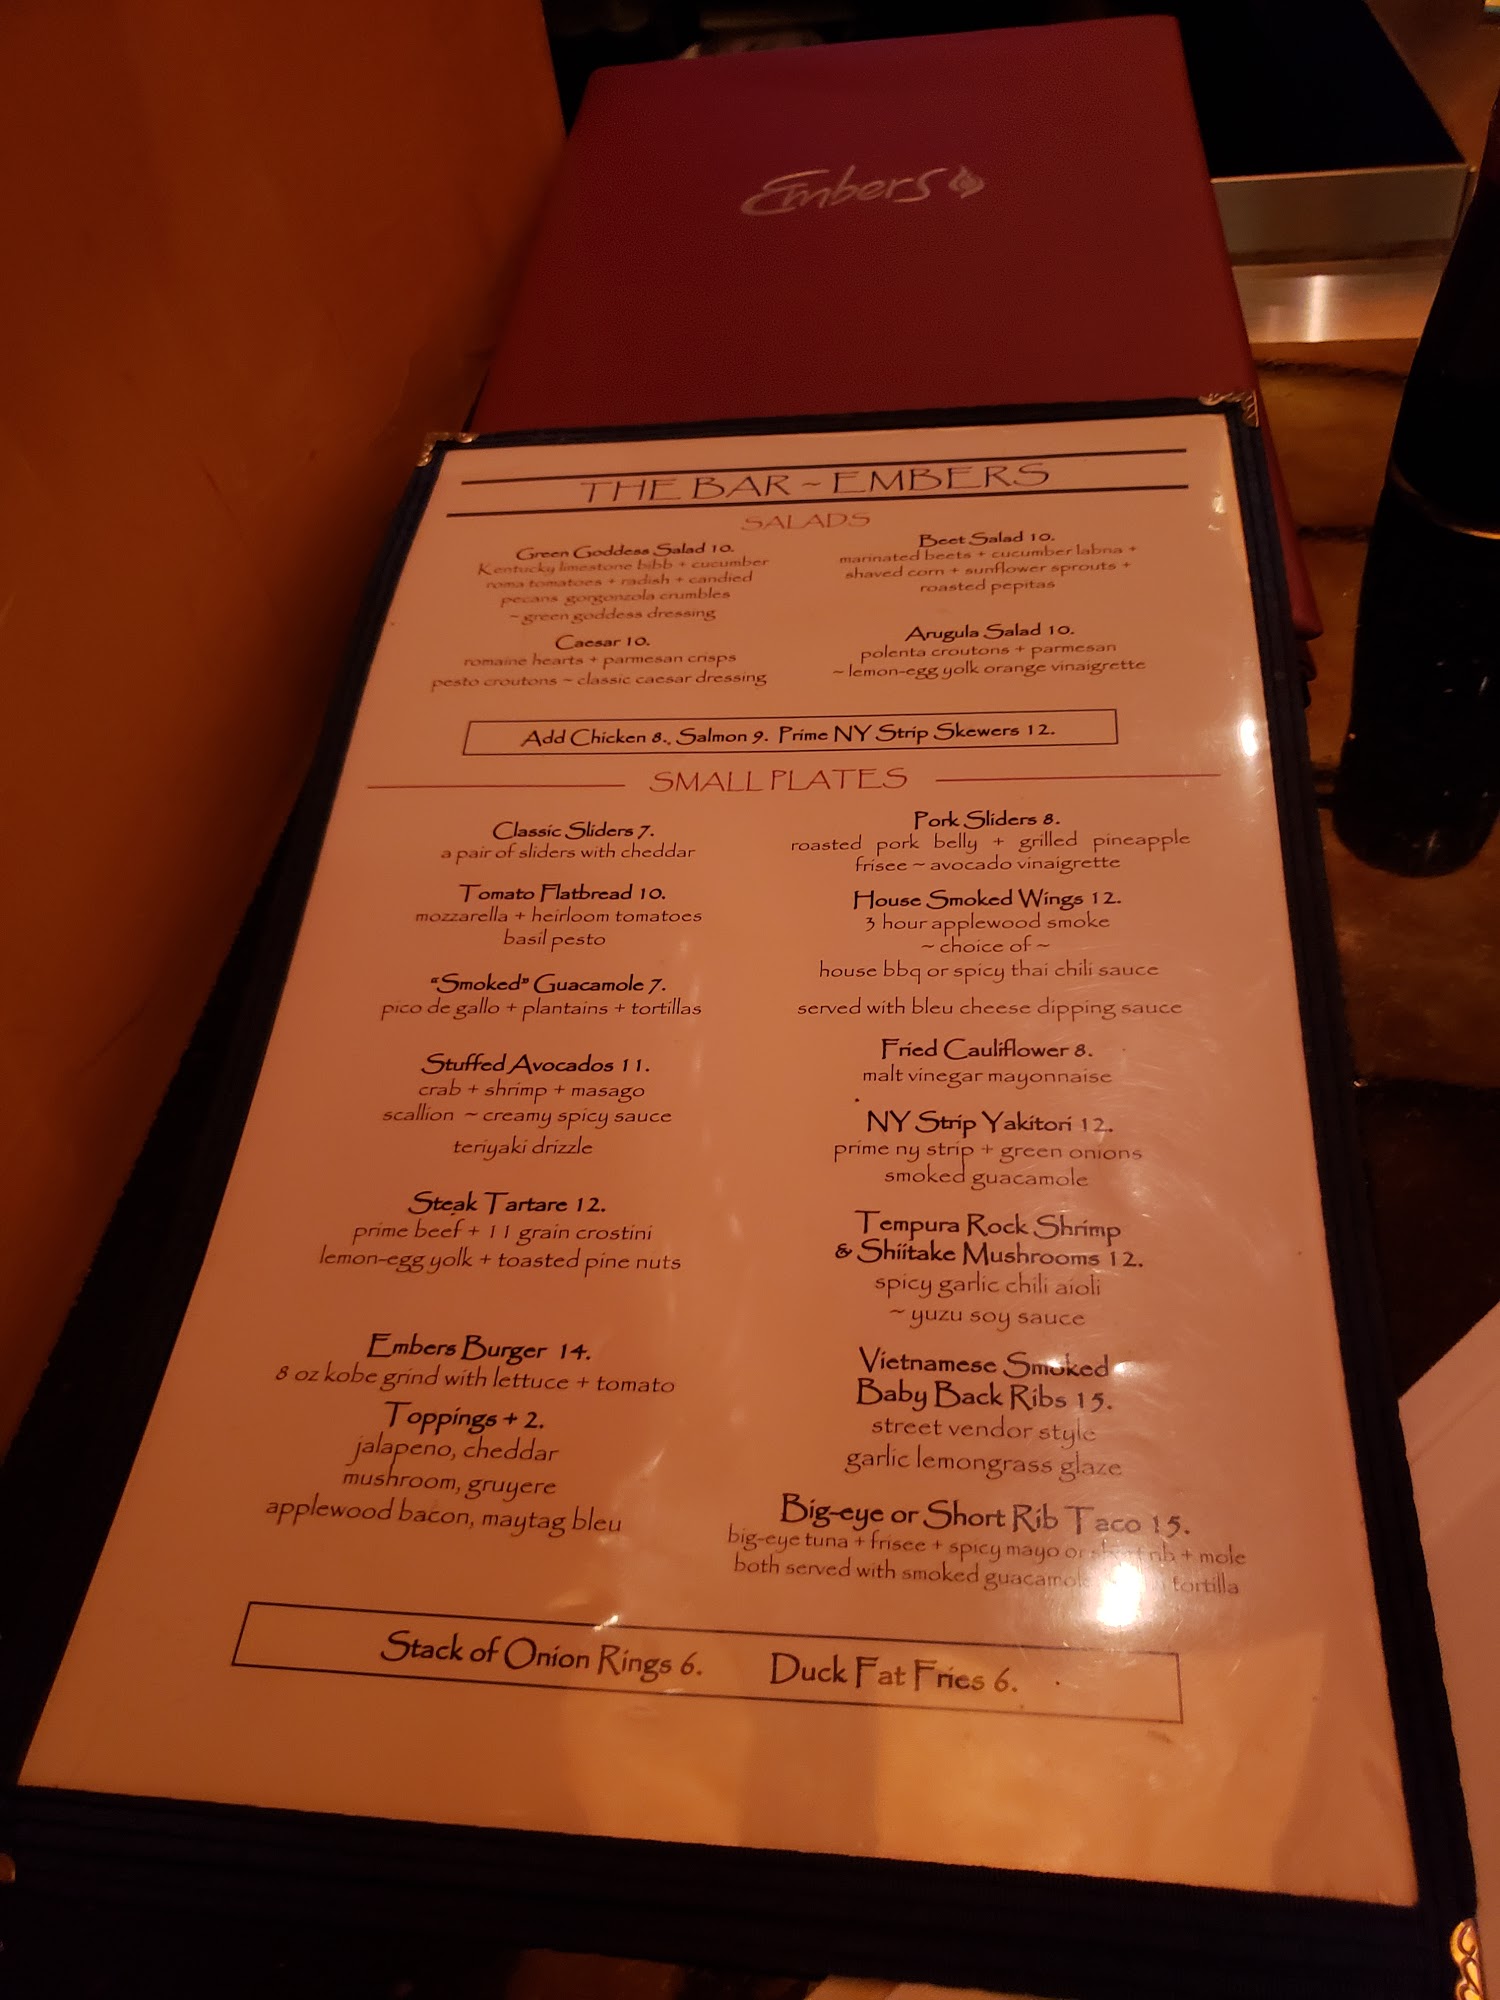 Embers
THE BAR ~ EMBERS
SALADS
Green Goddess Salad 10.
Kentucky limestone bibb + cucumber
roma tomatoes + radish + candied
pecans gorgonzola crumbles
~ green goddess dressing
Caesar 10.
romaine hearts + parmesan crisps
pesto croutons ~ classic caesar dressing
Beet Salad 10.
marinated beets + cucumber labna +
shaved corn + sunflower sprouts +
roasted pepitas
Arugula Salad 10.
polenta croutons + parmesan
~ lemon-egg yolk orange vinaigrette
Add Chicken 8., Salmon 9. Prime NY Strip Skewers 12.
SMALL PLATES
Classic Sliders 7.
a pair of sliders with cheddar
Tomato Flatbread 10.
mozzarella + heirloom tomatoes
basil pesto
"Smoked" Guacamole 7.
pico de gallo + plantains + tortillas
Stuffed Avocados 11.
crab + shrimp + masago
scallion ~ creamy spicy sauce
teriyaki drizzle
Steak Tartare 12.
prime beef + 11 grain crostini
lemon-egg yolk + toasted pine nuts
Embers Burger 14.
8 oz kobe grind with lettuce + tomato
Toppings + 2.
jalapeno, cheddar
mushroom, gruyere
applewood bacon, maytag bleu
Pork Sliders 8.
roasted pork belly + grilled pineapple
frisee ~ avocado vinaigrette
House Smoked Wings 12.
3 hour applewood smoke
~ choice of ~
house bbq or spicy thai chili sauce
served with bleu cheese dipping sauce
Fried Cauliflower 8.
malt vinegar mayonnaise
NY Strip Yakitori 12.
prime ny strip + green onions
smoked guacamole
Tempura Rock Shrimp
& Shiitake Mushrooms 12.
spicy garlic chili aioli
~ yuzu soy sauce
Vietnamese Smoked
Baby Back Ribs 15.
street vendor style
garlic lemongrass glaze
Big-eye or Short Rib Taco 15.
big-eye tuna + frisee + spicy mayo or short rib + mole
both served with smoked guacamole tortilla
Stack of Onion Rings 6. Duck Fat Fries 6.